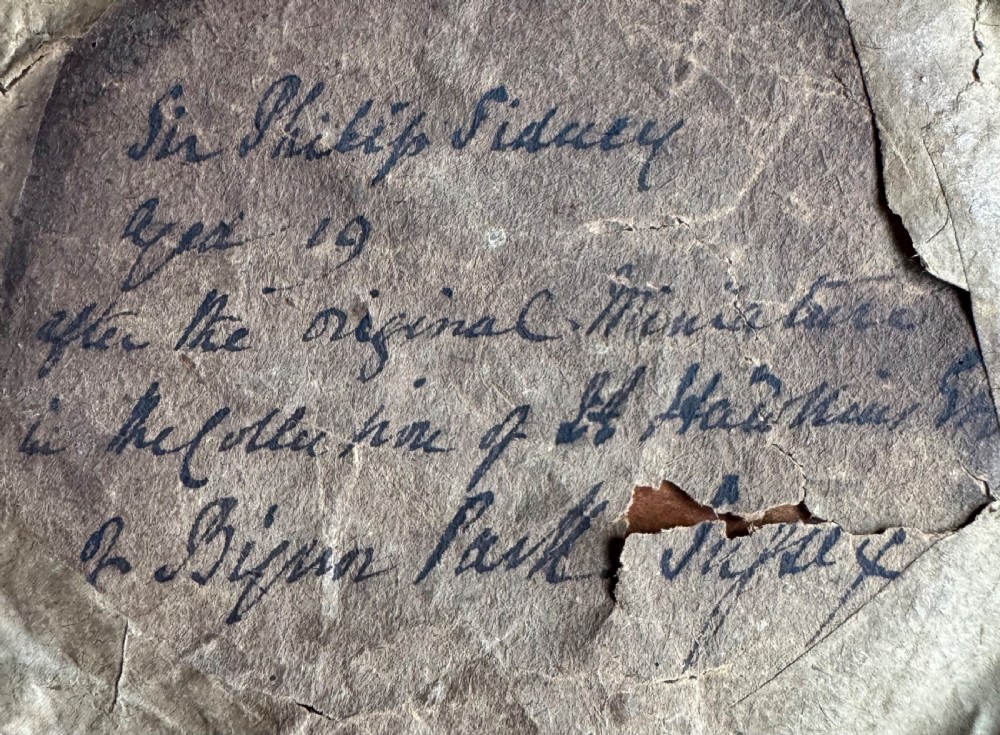 Sir Philip Sidney
aged 19
after the original Miniature
in the Collection of H Hawkins Esq
of Bignor Park Sussex